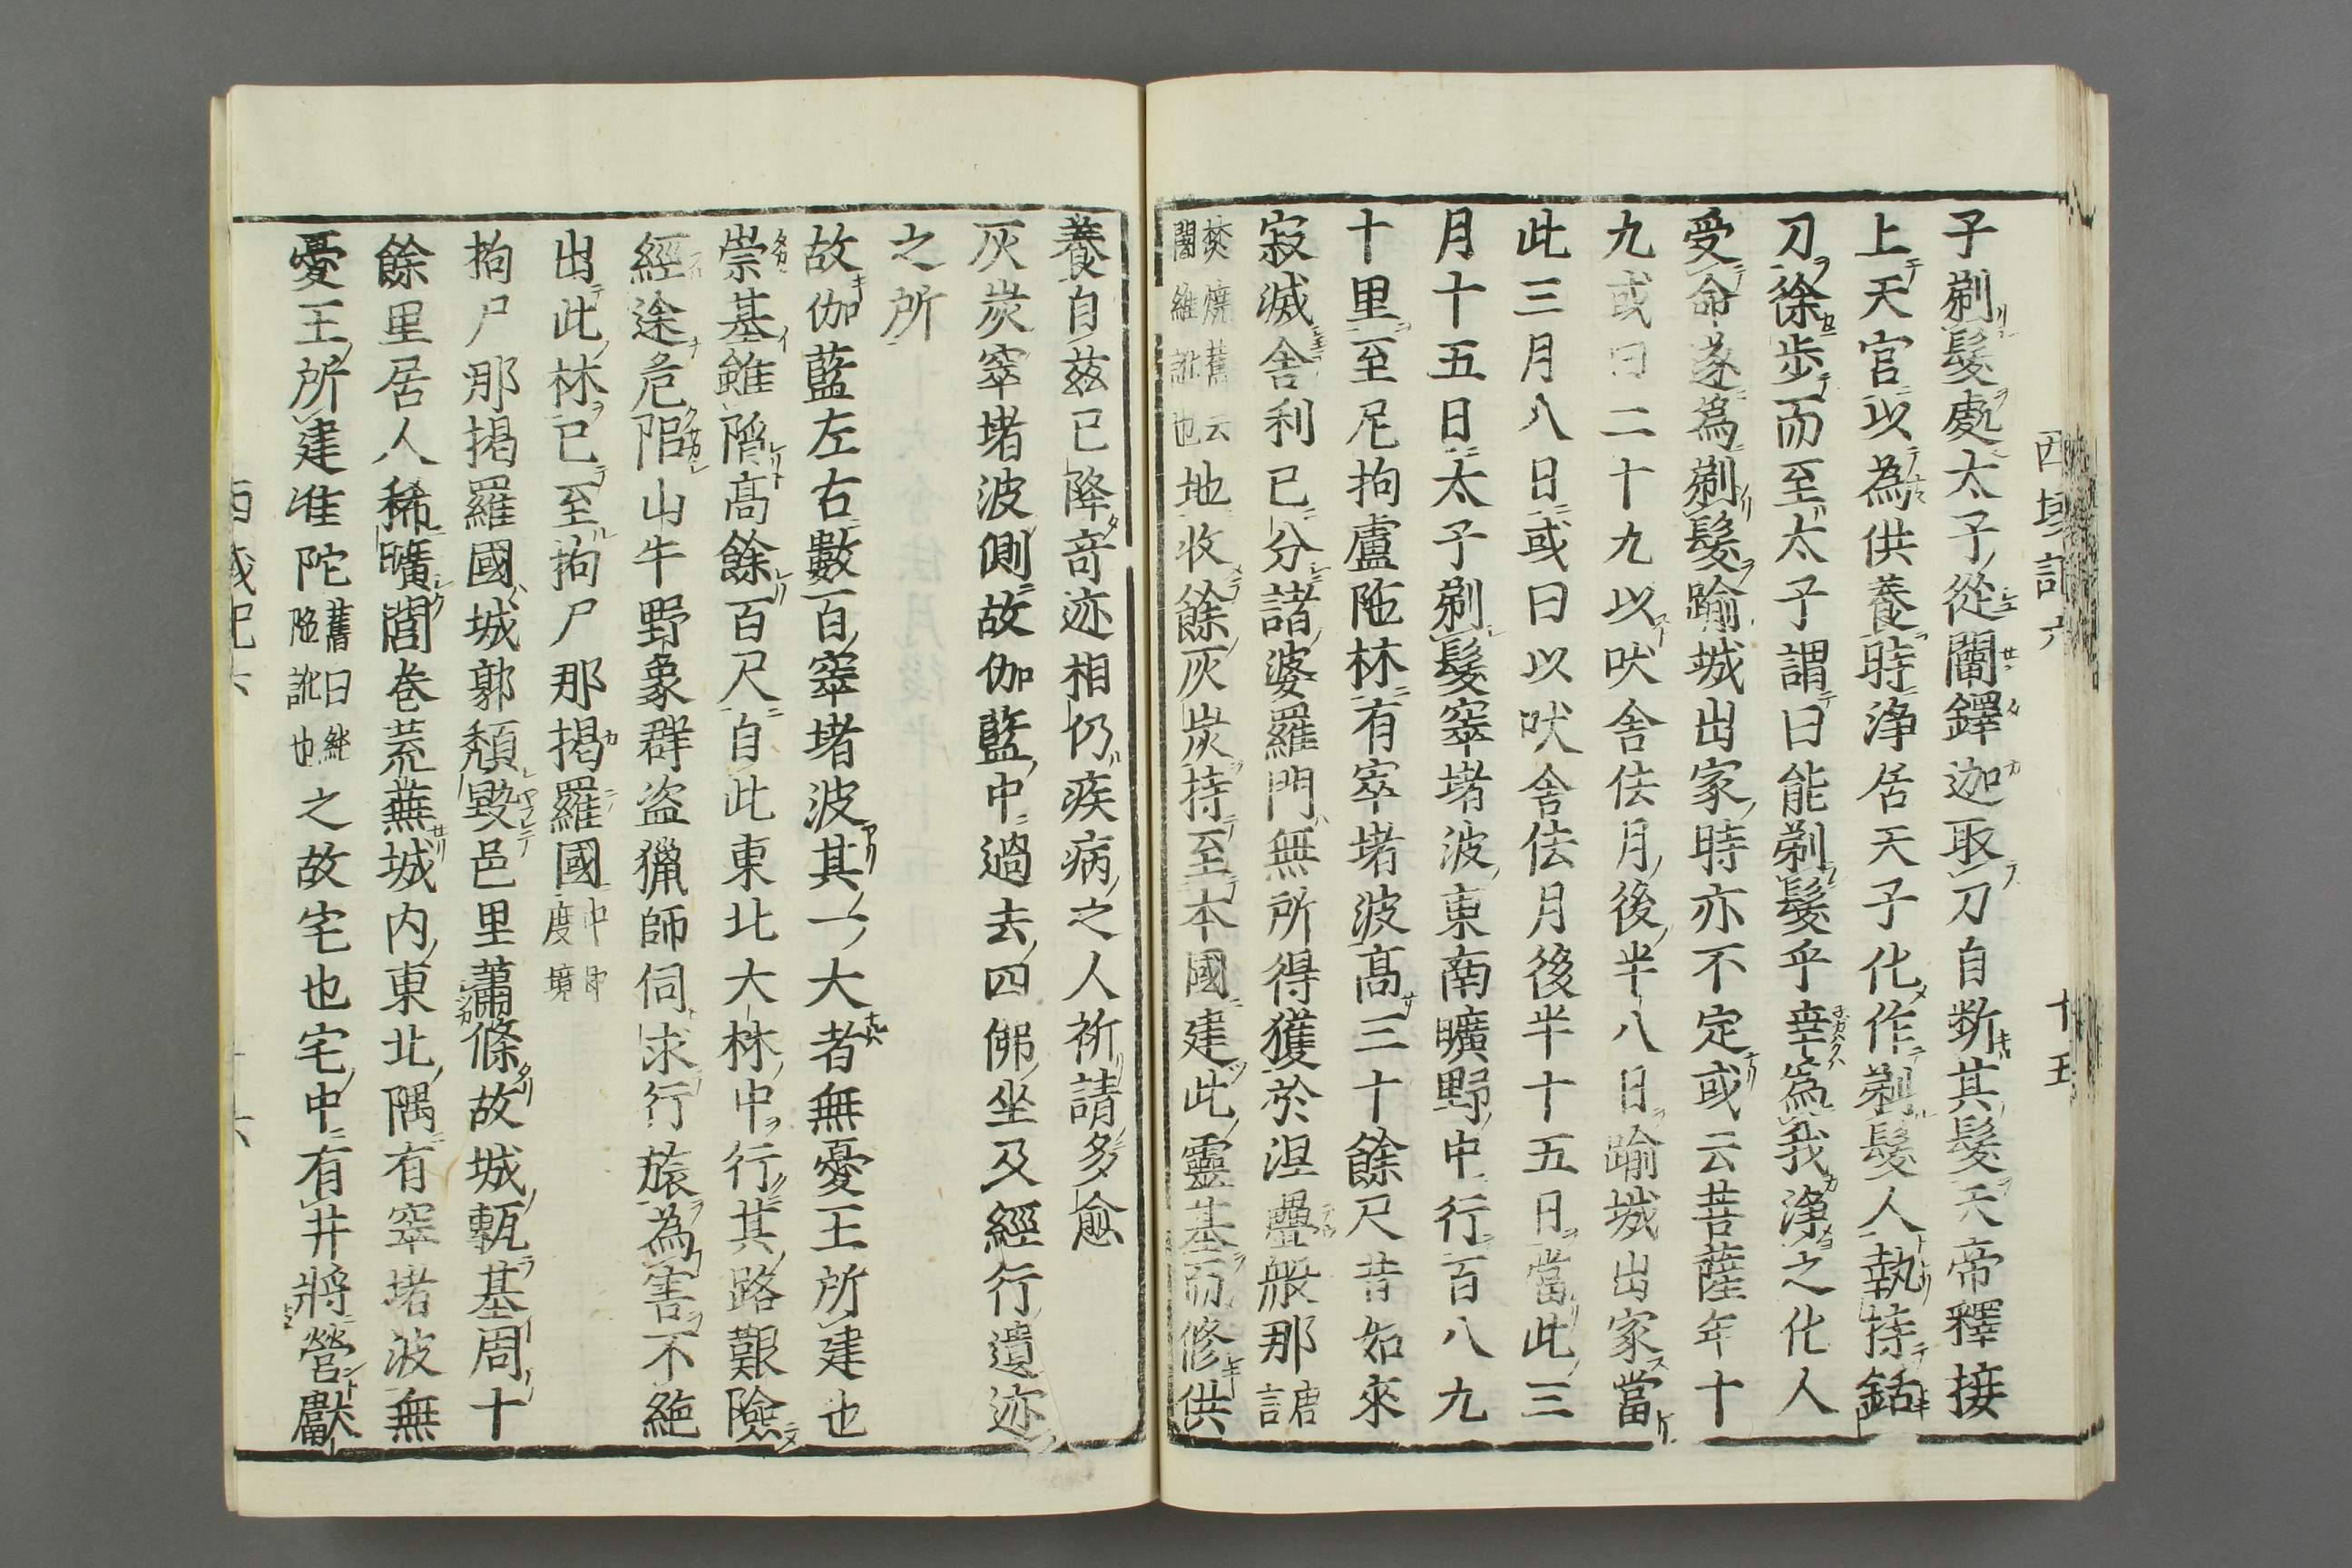 西域記六 十五
子剃髮處太子從闡鐸迦取刀自斷其髮天帝釋接
上天宮以為供養時淨居天子化作剃髮人執持銛
刀徐步而至太子謂曰能剃髮乎幸為我淨之化人
受命遂為剃髮踰城出家時亦不定或云菩薩年十
九或曰二十九以吠舍佉月後半八日踰城出家當
此三月八日或曰以吠舍佉月後半十五日當此三
月十五日太子剃髮窣堵波東南曠野中行百八九
十里至尼拘盧陀林有窣堵波高三十餘尺昔如來
寂滅舍利已分諸婆羅門無所得獲於涅疊般那唐言
焚燒舊云闍維訛也地收餘灰炭持至本國建此靈基而修供
養自茲已降奇迹相仍疾病之人祈請多愈
灰炭窣堵波側故伽藍中過去四佛坐及經行遺迹
之所
故伽藍左右數百窣堵波其一大者無憂王所建也
崇基雖陷高餘百尺自此東北大林中行其路艱險
經途危阻山牛野象群盜獵師伺求行旅為害不絕
出此林已至拘尸那揭羅國中印度境
拘尸那揭羅國城郭頹毀邑里蕭條故城甎基周十
餘里居人稀曠閭巷荒蕪城內東北隅有窣堵波無
憂王所建准陀舊曰純陀訛也之故宅也宅中有井將營獻
西域記六 十六